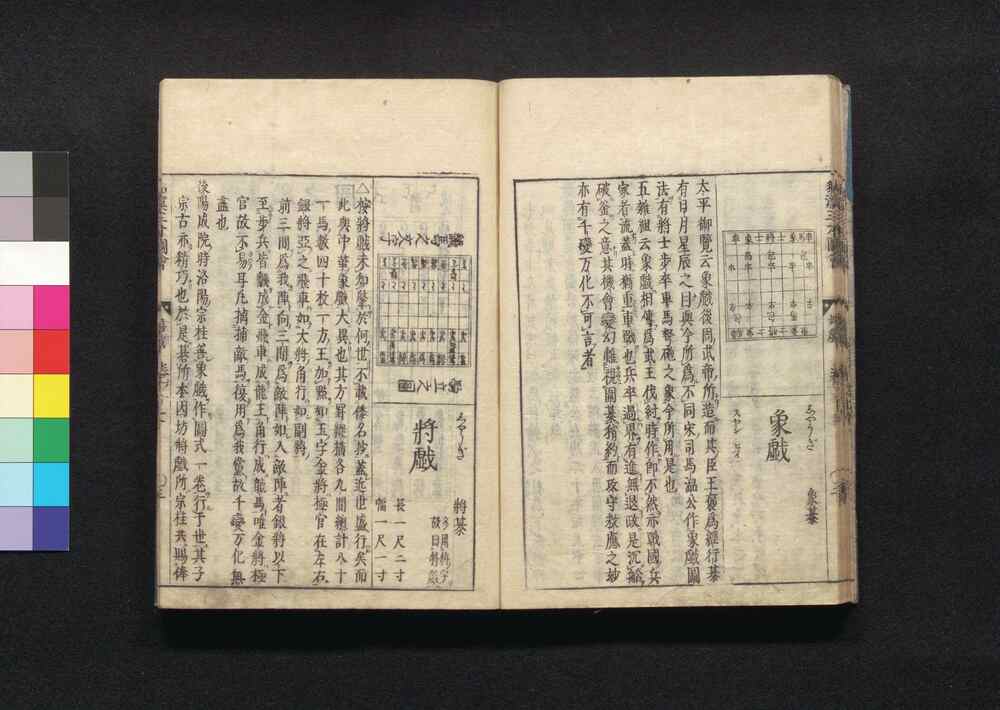 象戲
しやうぎ
スヤン ヒイ
象棊
太平御覽云象戲後周武帝所造而其臣王褒爲經行棊
有日月星辰之目與今所爲不同宋司馬温公作象戲圖
法有將士步卒車馬弩砲之象今所用是也
五雜組云象戲相傳爲武王伐紂時作卽不然亦戰國兵
家者流蓋時猶重車戰也兵卒過界有進無退政是沉船
破釜之意其機會變幻雖視圍棊稍約而攻守救應之妙
亦有千變万化不可言者
將戲
しやうぎ
將棊
長一尺二寸
幅一尺一寸
馬立之圖
△按將戲未知肇於何世不載倭名抄蓋近世盛行矣而
此與中華象戲大異也其方罫縱橫各九間總計八十
一馬數四十枚一方王加點如玉字金將極官在左右
銀將亞之飛車如大將角行如副將
前三間爲我陣向三間爲敵陣如入敵陣者銀將以下
至步兵皆飜成金飛車成龍王角行成龍馬唯金將極
官故不易耳凡擒捕敵馬復用爲我黨故千變万化無
盡也
後陽成院時洛陽宗桂善象戲作圖式一卷行于世其子
宗古亦精巧也於是碁所本因坊將戲所宗桂共賜俸